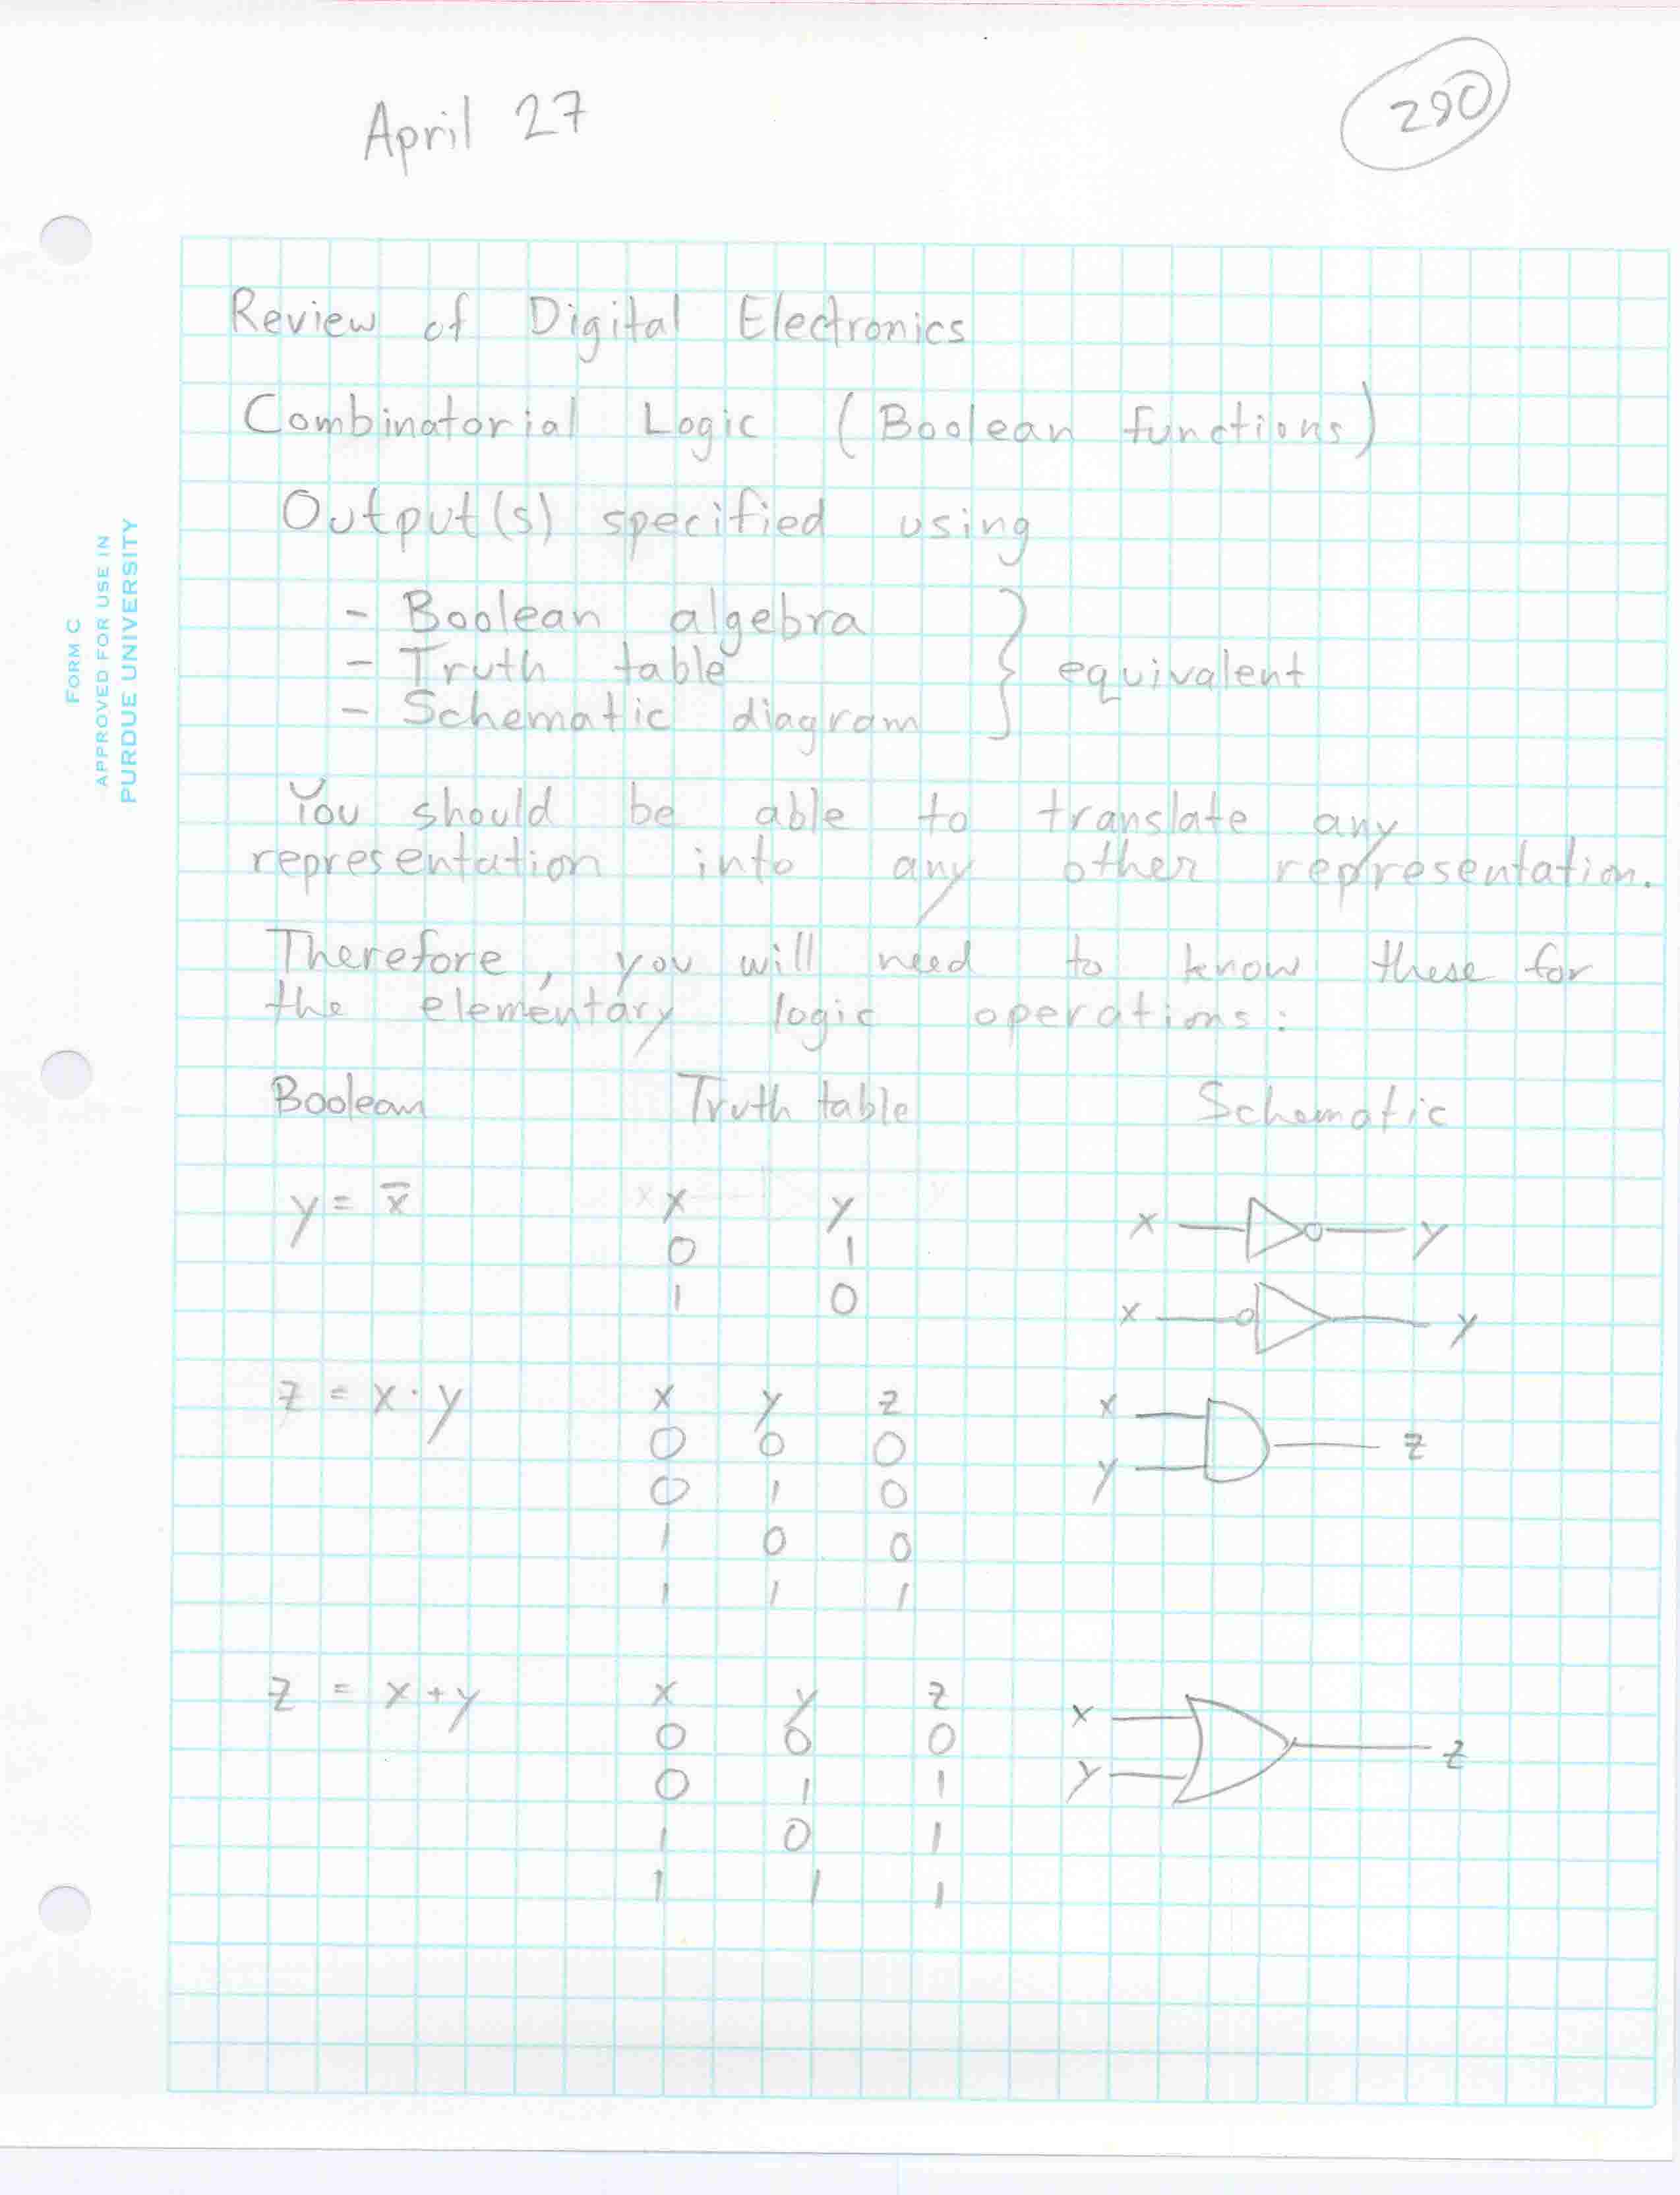 April 27
280
Review of Digital Electronics
Combinatorial Logic (Boolean functions)
Output(s) specified using
- Boolean algebra
- Truth table
- Schematic diagram
} equivalent
You should be able to translate any
representation into any other representation.
Therefore, you will need to know these for
the elementary logic operations:
Boolean Truth table Schematic
y = x̅
x y
0 1
1 0
x y
x y
z = x · y
x y z
0 0 0
0 1 0
1 0 0
1 1 1
x
y
z
z = x + y
x y z
0 0 0
0 1 1
1 0 1
1 1 1
x
y
z
FORM C
APPROVED FOR USE IN
PURDUE UNIVERSITY